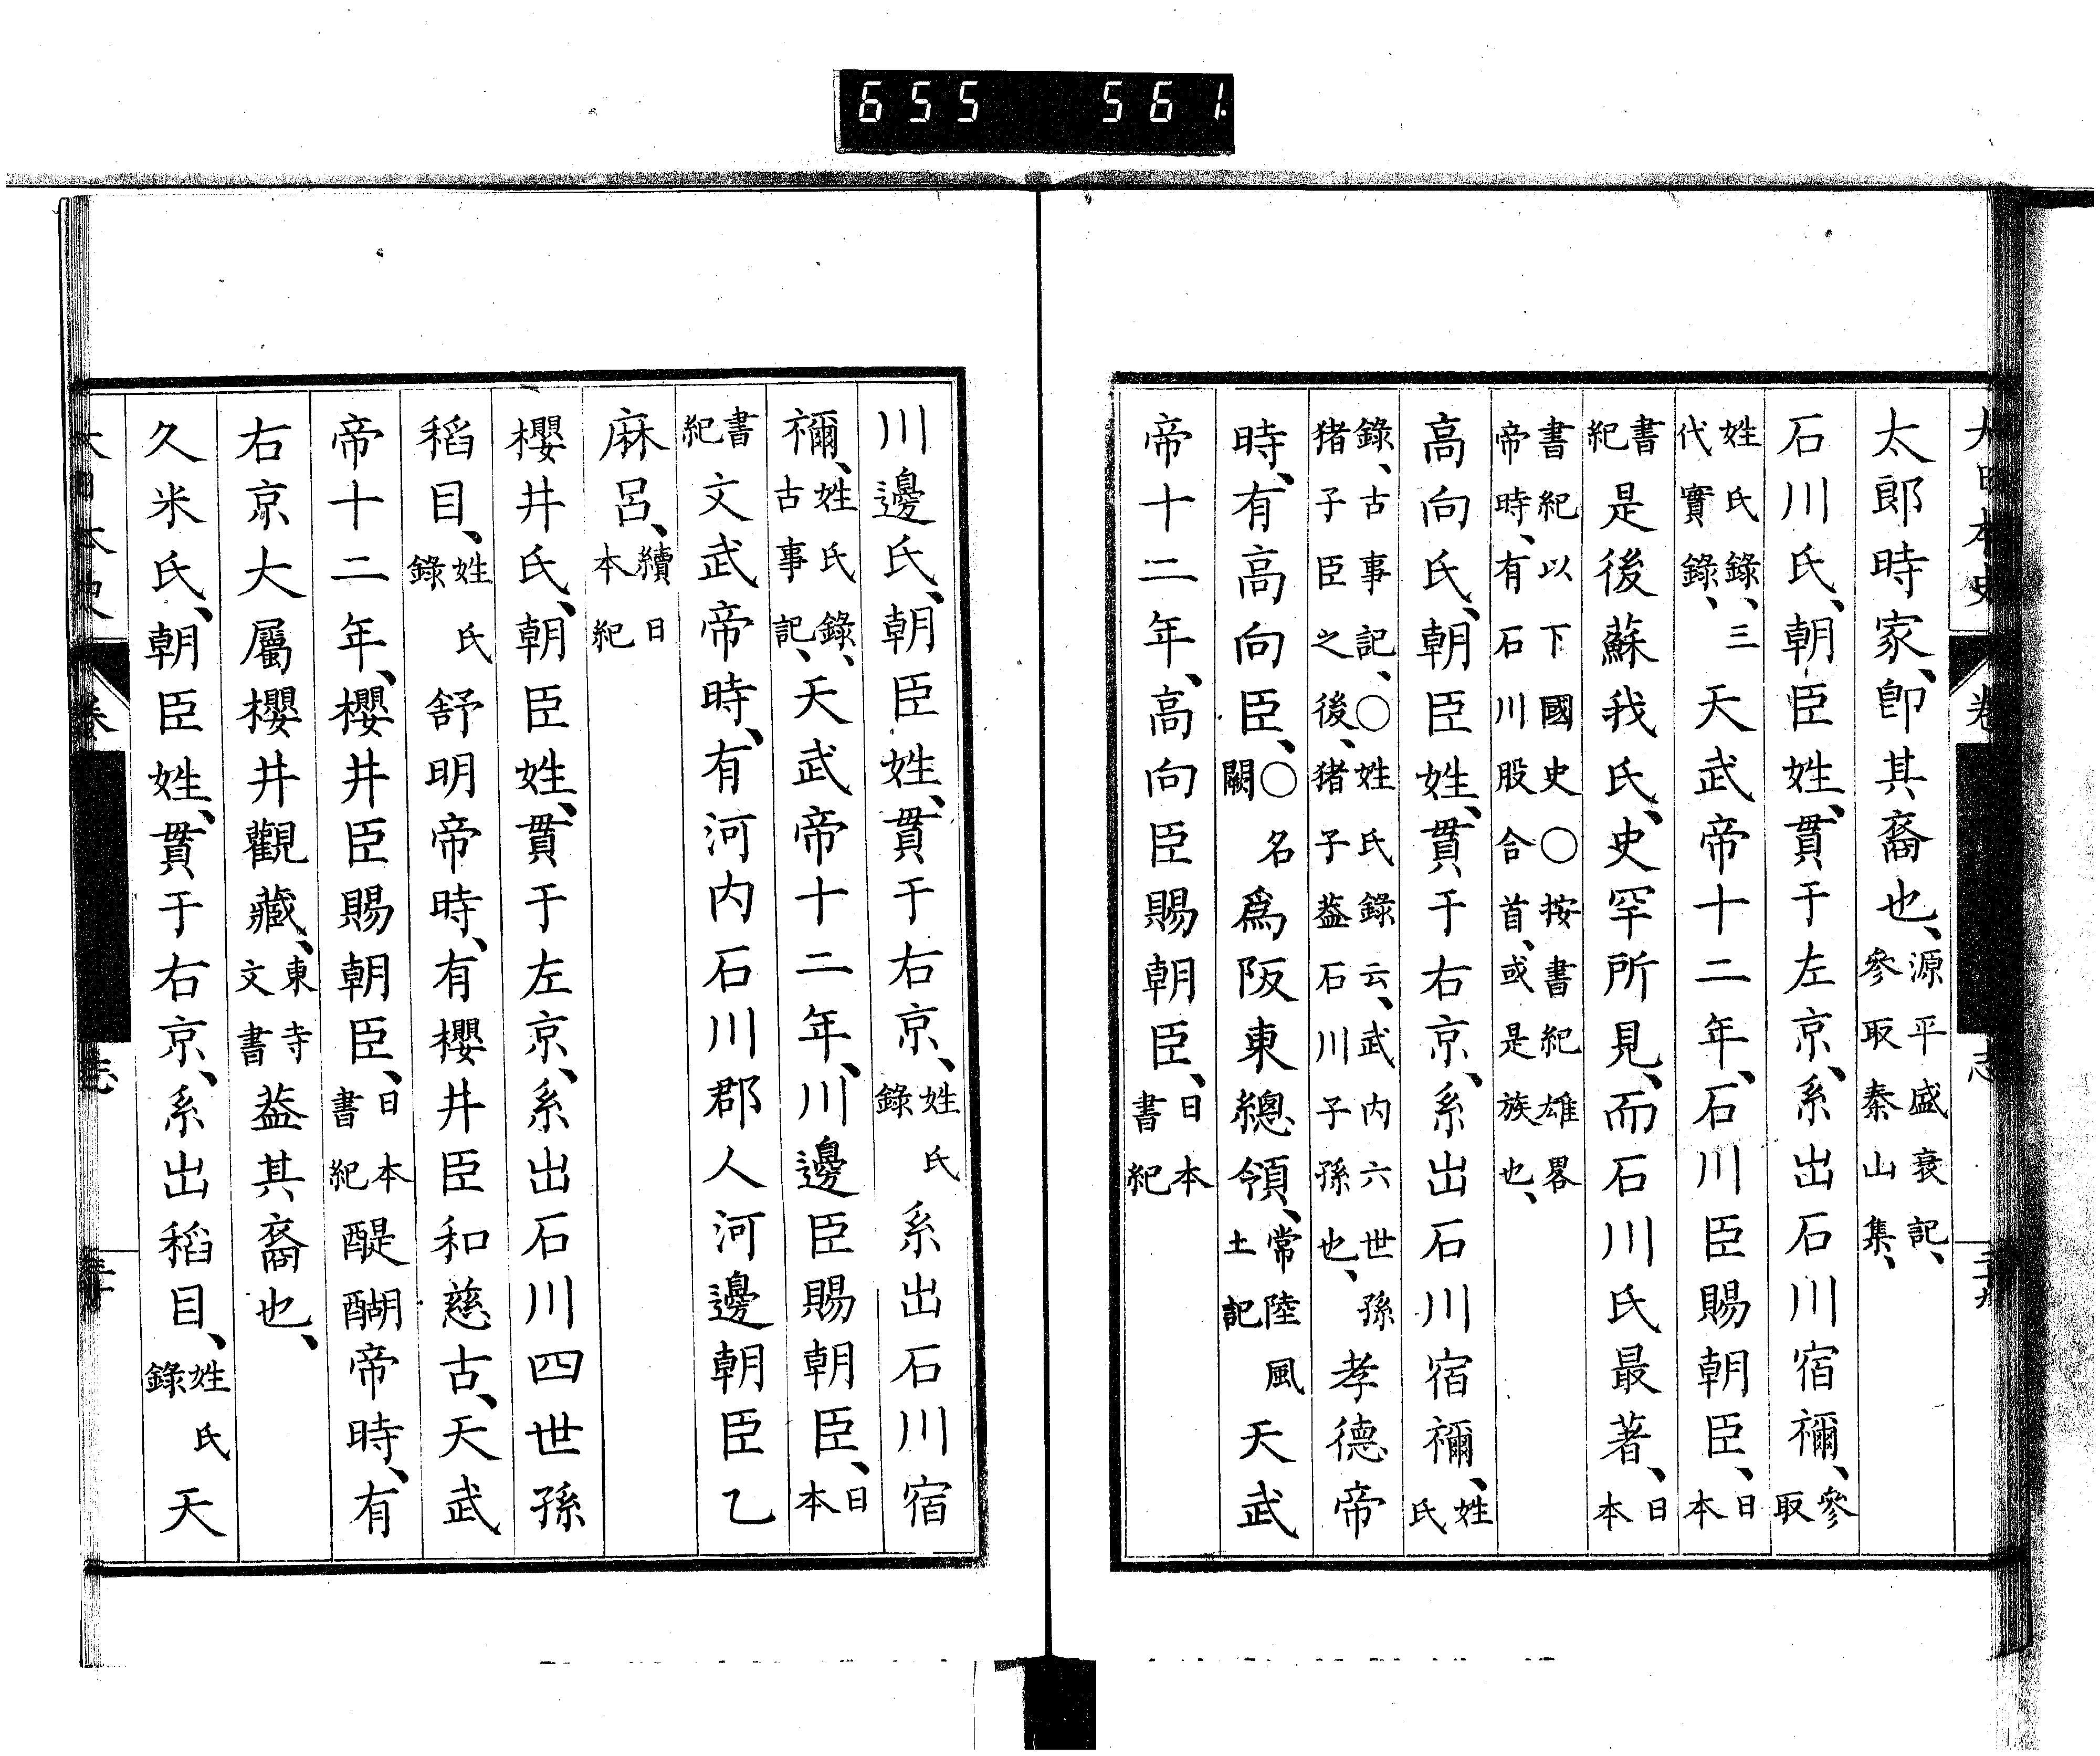 655 561
大日本史 卷 志 二十九
太郎時家、卽其裔也、源平盛衰記、參取秦山集、
石川氏、朝臣姓、貫于左京、系出石川宿禰、參取
姓氏錄、三代實錄、天武帝十二年、石川臣賜朝臣、日本
書紀是後蘇我氏、史罕所見、而石川氏最著、日本
書紀以下國史○按書紀雄畧帝時、有石川股合首、或是族也、
高向氏、朝臣姓、貫于右京、系出石川宿禰、姓氏
錄、古事記、○姓氏錄云、武内六世孫猪子臣之後、猪子蓋石川子孫也、孝德帝
時、有高向臣、○名闕爲阪東總領、常陸風土記天武
帝十二年、高向臣賜朝臣、日本書紀
川邊氏、朝臣姓、貫于右京、姓氏錄系出石川宿
禰、姓氏錄、古事記、天武帝十二年、川邊臣賜朝臣、日本
書紀文武帝時、有河内石川郡人河邊朝臣乙
麻呂、續日本紀
櫻井氏、朝臣姓、貫于左京、系出石川四世孫
稻目、姓氏錄舒明帝時、有櫻井臣和慈古、天武
帝十二年、櫻井臣賜朝臣、日本書紀醍醐帝時、有
右京大屬櫻井觀藏、東寺文書蓋其裔也、
久米氏、朝臣姓、貫于右京、系出稻目、姓氏錄天
大日本史 卷 志